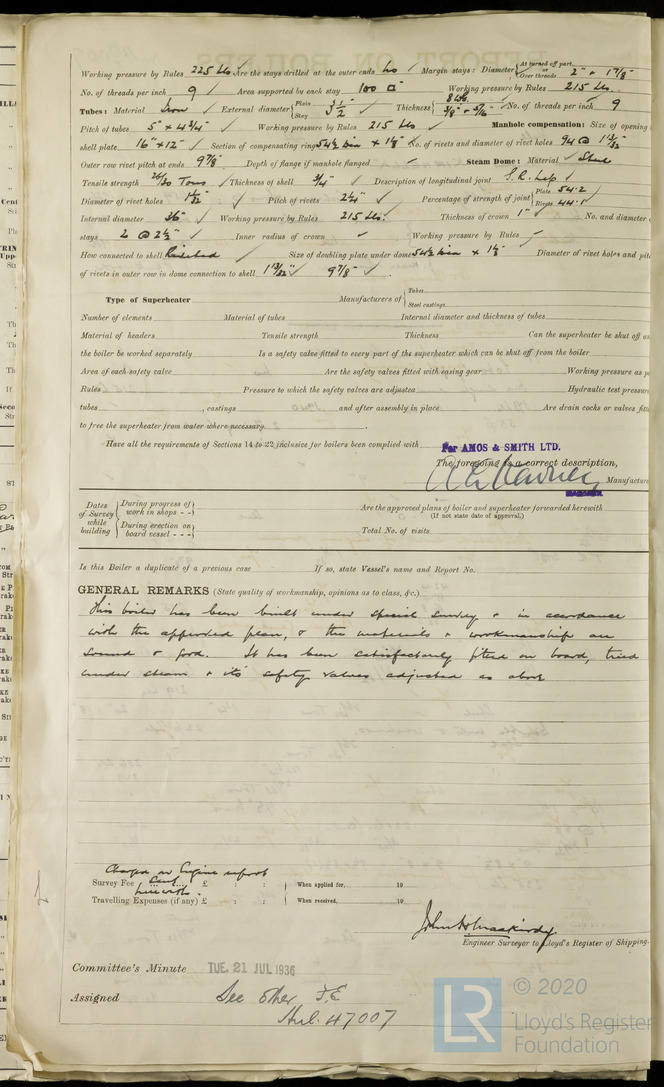 Working pressure by Rules 225 lbs Are the stays drilled at the outer ends No Margin stays: Diameter { At turned off part, Over threads 2" + 1 7/8"
No. of threads per inch 9 Area supported by each stay 100 □" Working pressure by Rules 215 lbs.
Tubes: Material Iron External diameter { Plain Stay 3 1/2" Thickness { 8 WG. 3/8" + 5/16" No. of threads per inch 9
Pitch of tubes 5" x 4 3/4" Working pressure by Rules 215 lbs Manhole compensation: Size of opening
shell plate 16" x 12" Section of compensating ring 54 1/2 dia x 1 1/8" No. of rivets and diameter of rivet holes 94 @ 1 13/32"
Outer row rivet pitch at ends 9 7/8" Depth of flange if manhole flanged Steam Dome: Material Steel
Tensile strength 26/30 Tons Thickness of shell 3/4" Description of longitudinal joint S.R. Lap
Diameter of rivet holes Pitch of rivets 2 1/4" Percentage of strength of joint { Plate 54.2 Rivets 44.1
Internal diameter 36" Working pressure by Rules 215 lbs. Thickness of crown 1" No. and diameter
stays 2 @ 2 1/2" Inner radius of crown Working pressure by Rules
How connected to shell Riveted Size of doubling plate under dome 54 1/2 dia x 1 1/8" Diameter of rivet holes and pit
of rivets in outer row in dome connection to shell 1 13/32" 9 7/8"
Type of Superheater Manufacturers of { Tubes Steel castings
Number of elements Material of tubes Internal diameter and thickness of tubes
Material of headers Tensile strength Thickness Can the superheater be shut off a
the boiler be worked separately Is a safety valve fitted to every part of the superheater which can be shut off from the boiler
Area of each safety valve Are the safety valves fitted with easing gear Working pressure as p
Rules Pressure to which the safety valves are adjusted Hydraulic test pressure
tubes , castings and after assembly in place Are drain cocks or valves fitt
to free the superheater from water where necessary.
Have all the requirements of Sections 14 to 22 inclusive for boilers been complied with
For AMOS & SMITH LTD.
The foregoing is a correct description,
Manufactur
MANAGER.
Dates of Survey while building { During progress of work in shops - - } Are the approved plans of boiler and superheater forwarded herewith
(If not state date of approval.)
{ During erection on board vessel - - - } Total No. of visits
Is this Boiler a duplicate of a previous case If so, state Vessel's name and Report No.
GENERAL REMARKS (State quality of workmanship, opinions as to class, &c.)
This boiler has been built under special survey & in accordance
with the approved plan, & the materials & workmanship are
sound & good. It has been satisfactorily fitted on board, tried
under steam & its safety valves adjusted as above
Charged on Engine report
Survey Fee £ : : When applied for, 19
herewith.
Travelling Expenses (if any) £ : : When received, 19
Engineer Surveyor to Lloyd's Register of Shipping.
Committee's Minute TUE. 21 JUL 1936
Assigned See other F.E
Hul. 47007
LR
© 2020
Lloyd's Register
Foundation